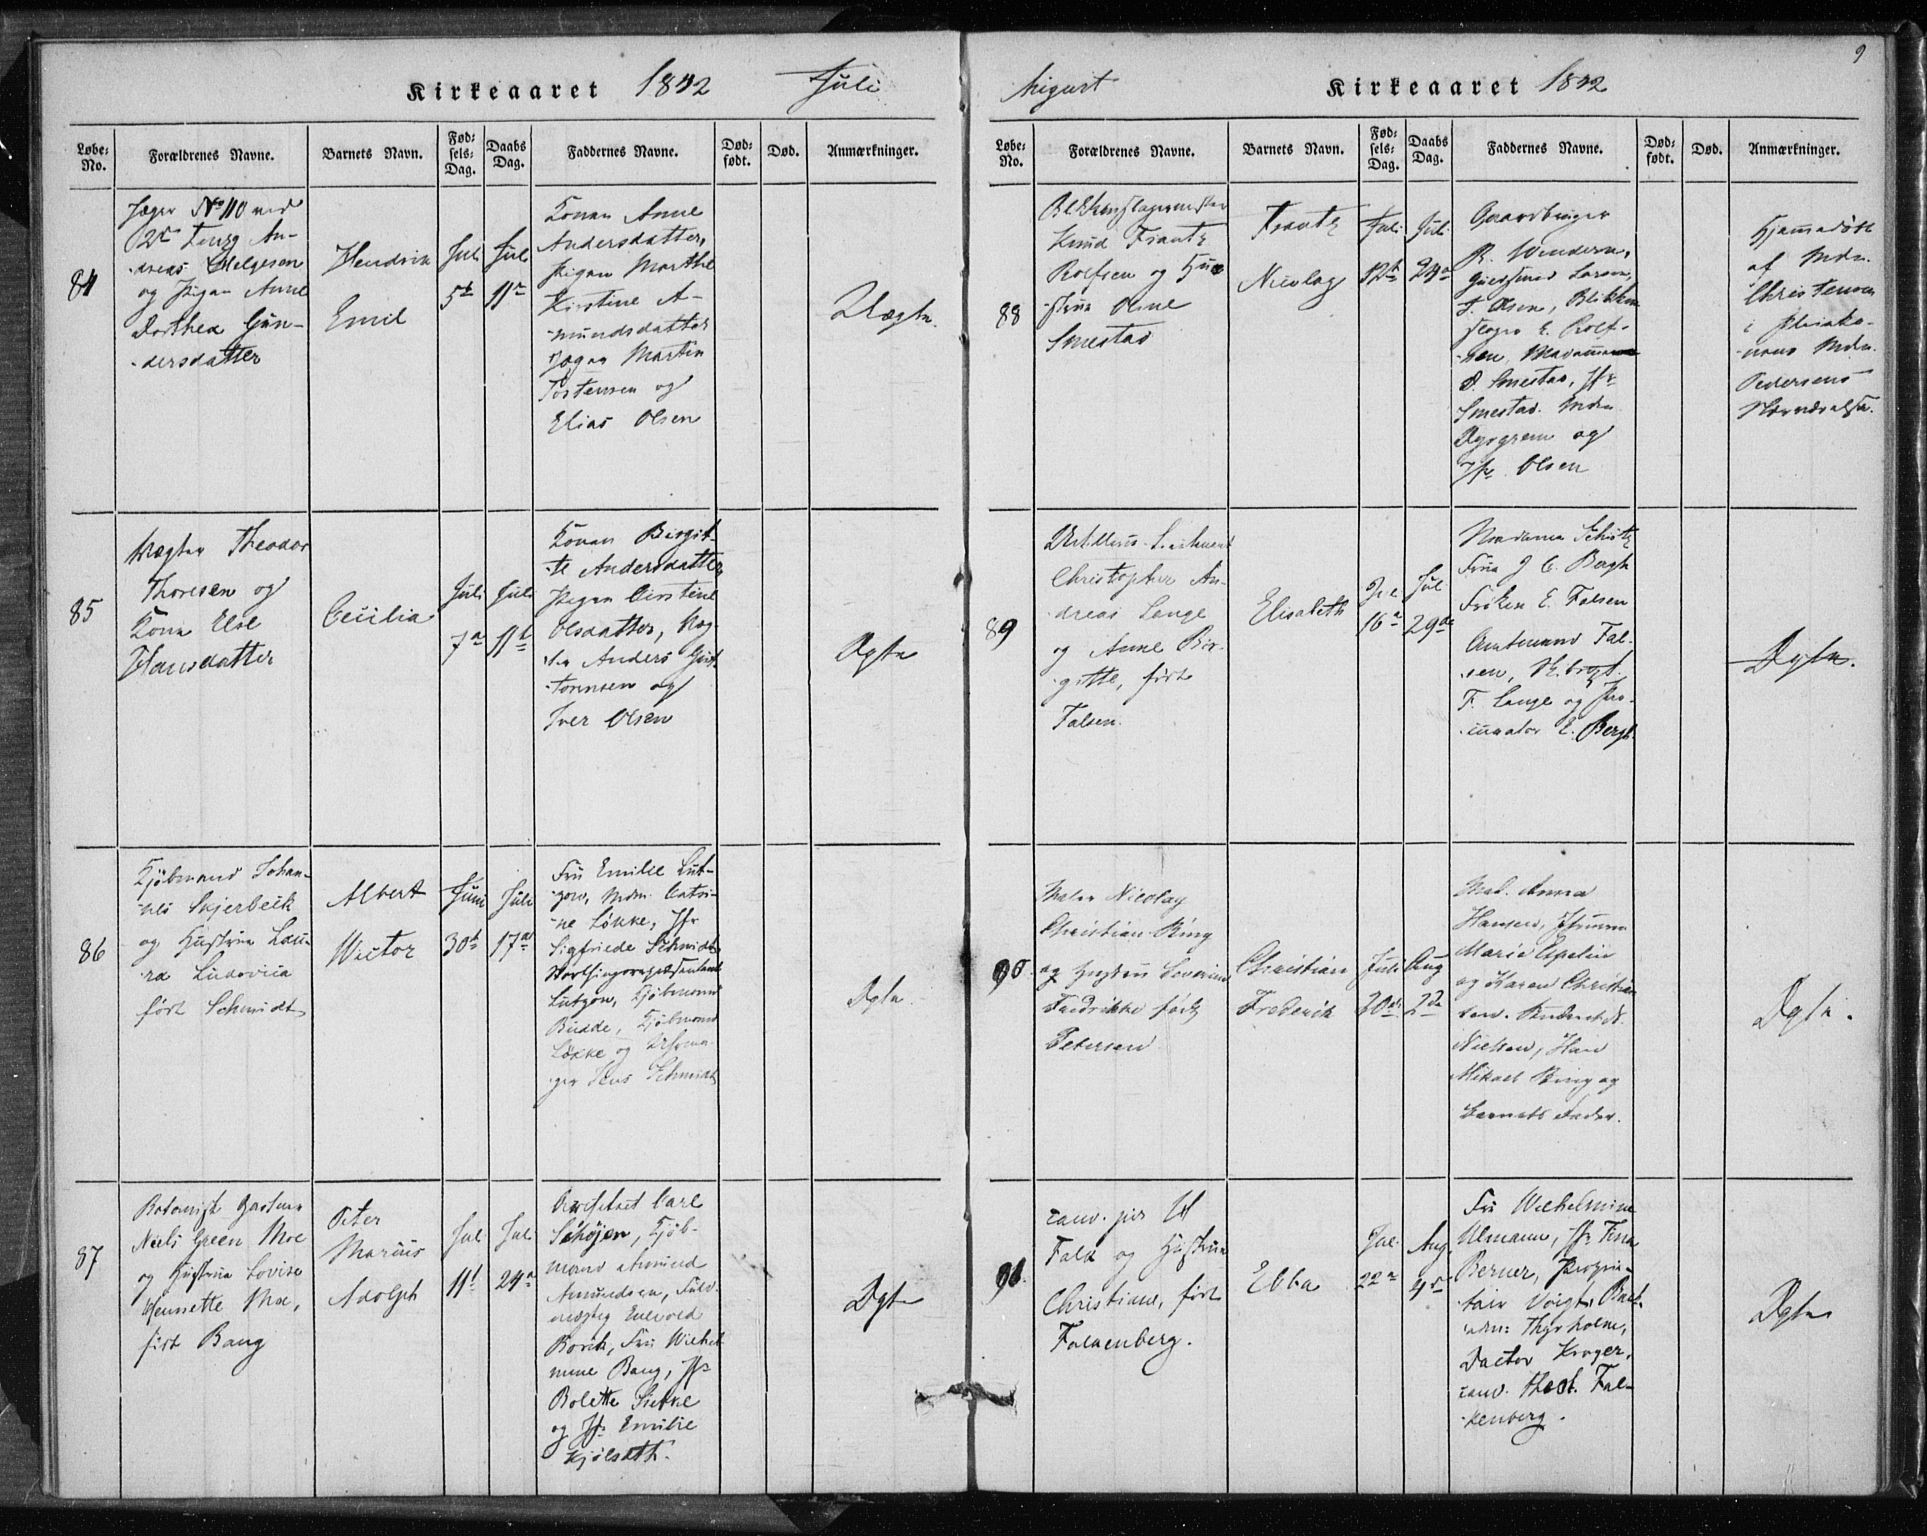 Kirkeaaret 1842 Juli
Løbe-No. Forældrenes Navne. Barnets Navn. Fødsels-Dag. Daabs Dag. Faddernes Navne. Dødfødt. Død. Anmærkninger.
84
Jæger No 110 ved
2de Andreas Helgesen
og Pigen Anne
Dorthea Gundersdatter
Hendrik
Emil
Juli
5te
Juli
11te
Konen Anne
Andersdatter,
Pigen Marthe
Kirstine Amundsdatter
Jæger Martin
Tostensen og
Elias Olsen
Uægte.
85
Vægter Theodor
Thoresen og
Kone Else
Hansdatter
Cecilia
Juli
7de
Juli
11te
Konen Birgitte Andersdatter,
Pigen Cirstine
Olsdatter,
Anders
og
Iver Olsen
Ægte
86
Kjöbmand Johannes Skjerbeck
og Hustrue Laura Ludovica
født Schmidt
Albert
Victor
Juni
30te
Juli
17de
Fru Emilie Lutzow, Mdm.
Løkke, Jfr
Sigfriede Schmidt
Lutzow, Kjöbmand
Budde, Kjöbmand
Løkke og
Jens Schmidt
Ægte.
87
Botanisk Gartner
Niels Green Moe
og Hustrue Lovise
Hennette Moe,
født Bang
Peter
Marius
Adolph
Juli
11te
Juli
24de
Carl
Schöjen, Kjöbmand Amund
Amundsen,
Enevold
Borch, Fru Wilhelmine Bang, Jfr
Bolette Sinkke
og Jfr Emilie
Kjölseth.
Ægte
August Kirkeaaret 1842
9
Løbe-No. Forældrenes Navne. Barnets Navn. Fødsels-Dag. Daabs Dag. Faddernes Navne. Dødfødt. Død. Anmærkninger.
88
Blikkenslagermester
Knud Frantz
Rolfsen og Hustrue Oline
Smestad
Frantz
Nicolay
Juli
12te
Juli
24de
B.
Guldsmed Larsen,
T. Olsen, Blikkenslager E. Rolfsen, Madamme
D. Smestad, Jfr
Smestad. Mdm
og
Jfr Olsen
Hjemmedøbt
af Mdm.
Christensen
i
Mdm.
Pedersens
Nærværelse.
89
Artilleri-
Christopher Andreas Lange
og Anne Birgitte, født
Falsen.
Elisabeth
Jul
16de
Jul
29de
Madame Schiøtz
Frue J C. Bergh
Frøken E. Falsen
Amtmand Falsen,
F. Lange og Procurator E. Bergh
Ægte.
90.
Maler Nicolay
Christian Bing
og Hustrue Severine
Fredrikke født
Petersen
Christian
Frederik
Juli
20de
Aug
2de
Mad. Anna
Hansen,
Marie
og Karen Christian
Nielsen, Hans
Mikael Bing og
Barnets Fader.
Ægte.
91.
cand. jur. U
Falk og Hustrue
Christiane, født
Falkenberg.
Ebba
Jul.
22de
Aug
4de
Fru Wilhelmine
Ulmann, Jfr Tina
Berner, Proprietair Voigt,
Thyrholm,
Doctor Krøger,
cand. theol. Falkenberg.
Ægte